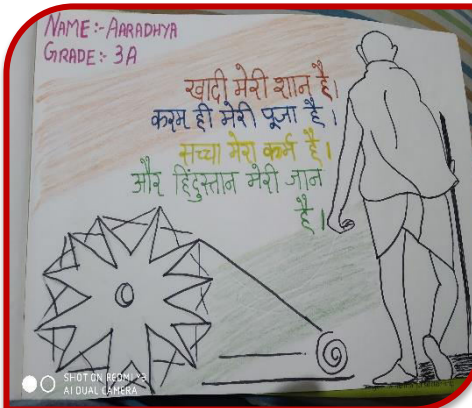 NAME:- AARADHYA
GRADE:- 3A
खादी मेरी शान है।
करम ही मेरी पूजा है।
सच्चा मेरा कर्म है।
और हिंदुस्तान मेरी जान
है।
SHOT ON REDMI Y2
AI DUAL CAMERA